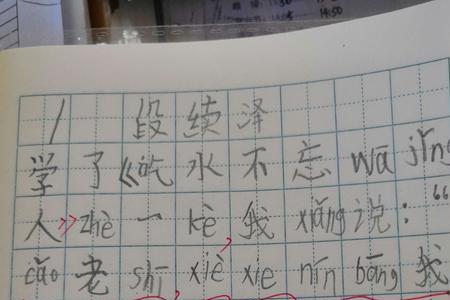 段续泽
学了《吃水不忘wā jǐng
人》zhè一kè,我xiǎng说:“
cáo老shī,xiè xie nín bāng我